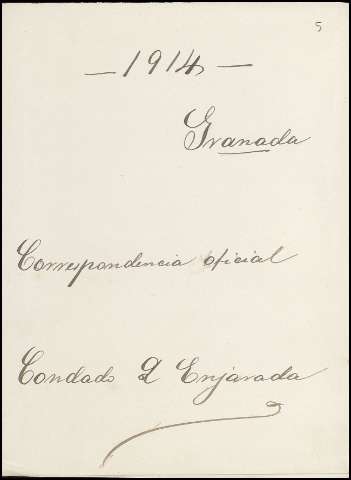 5
— 1914 —
Granada
Correspondencia oficial
Condado D Enjarada